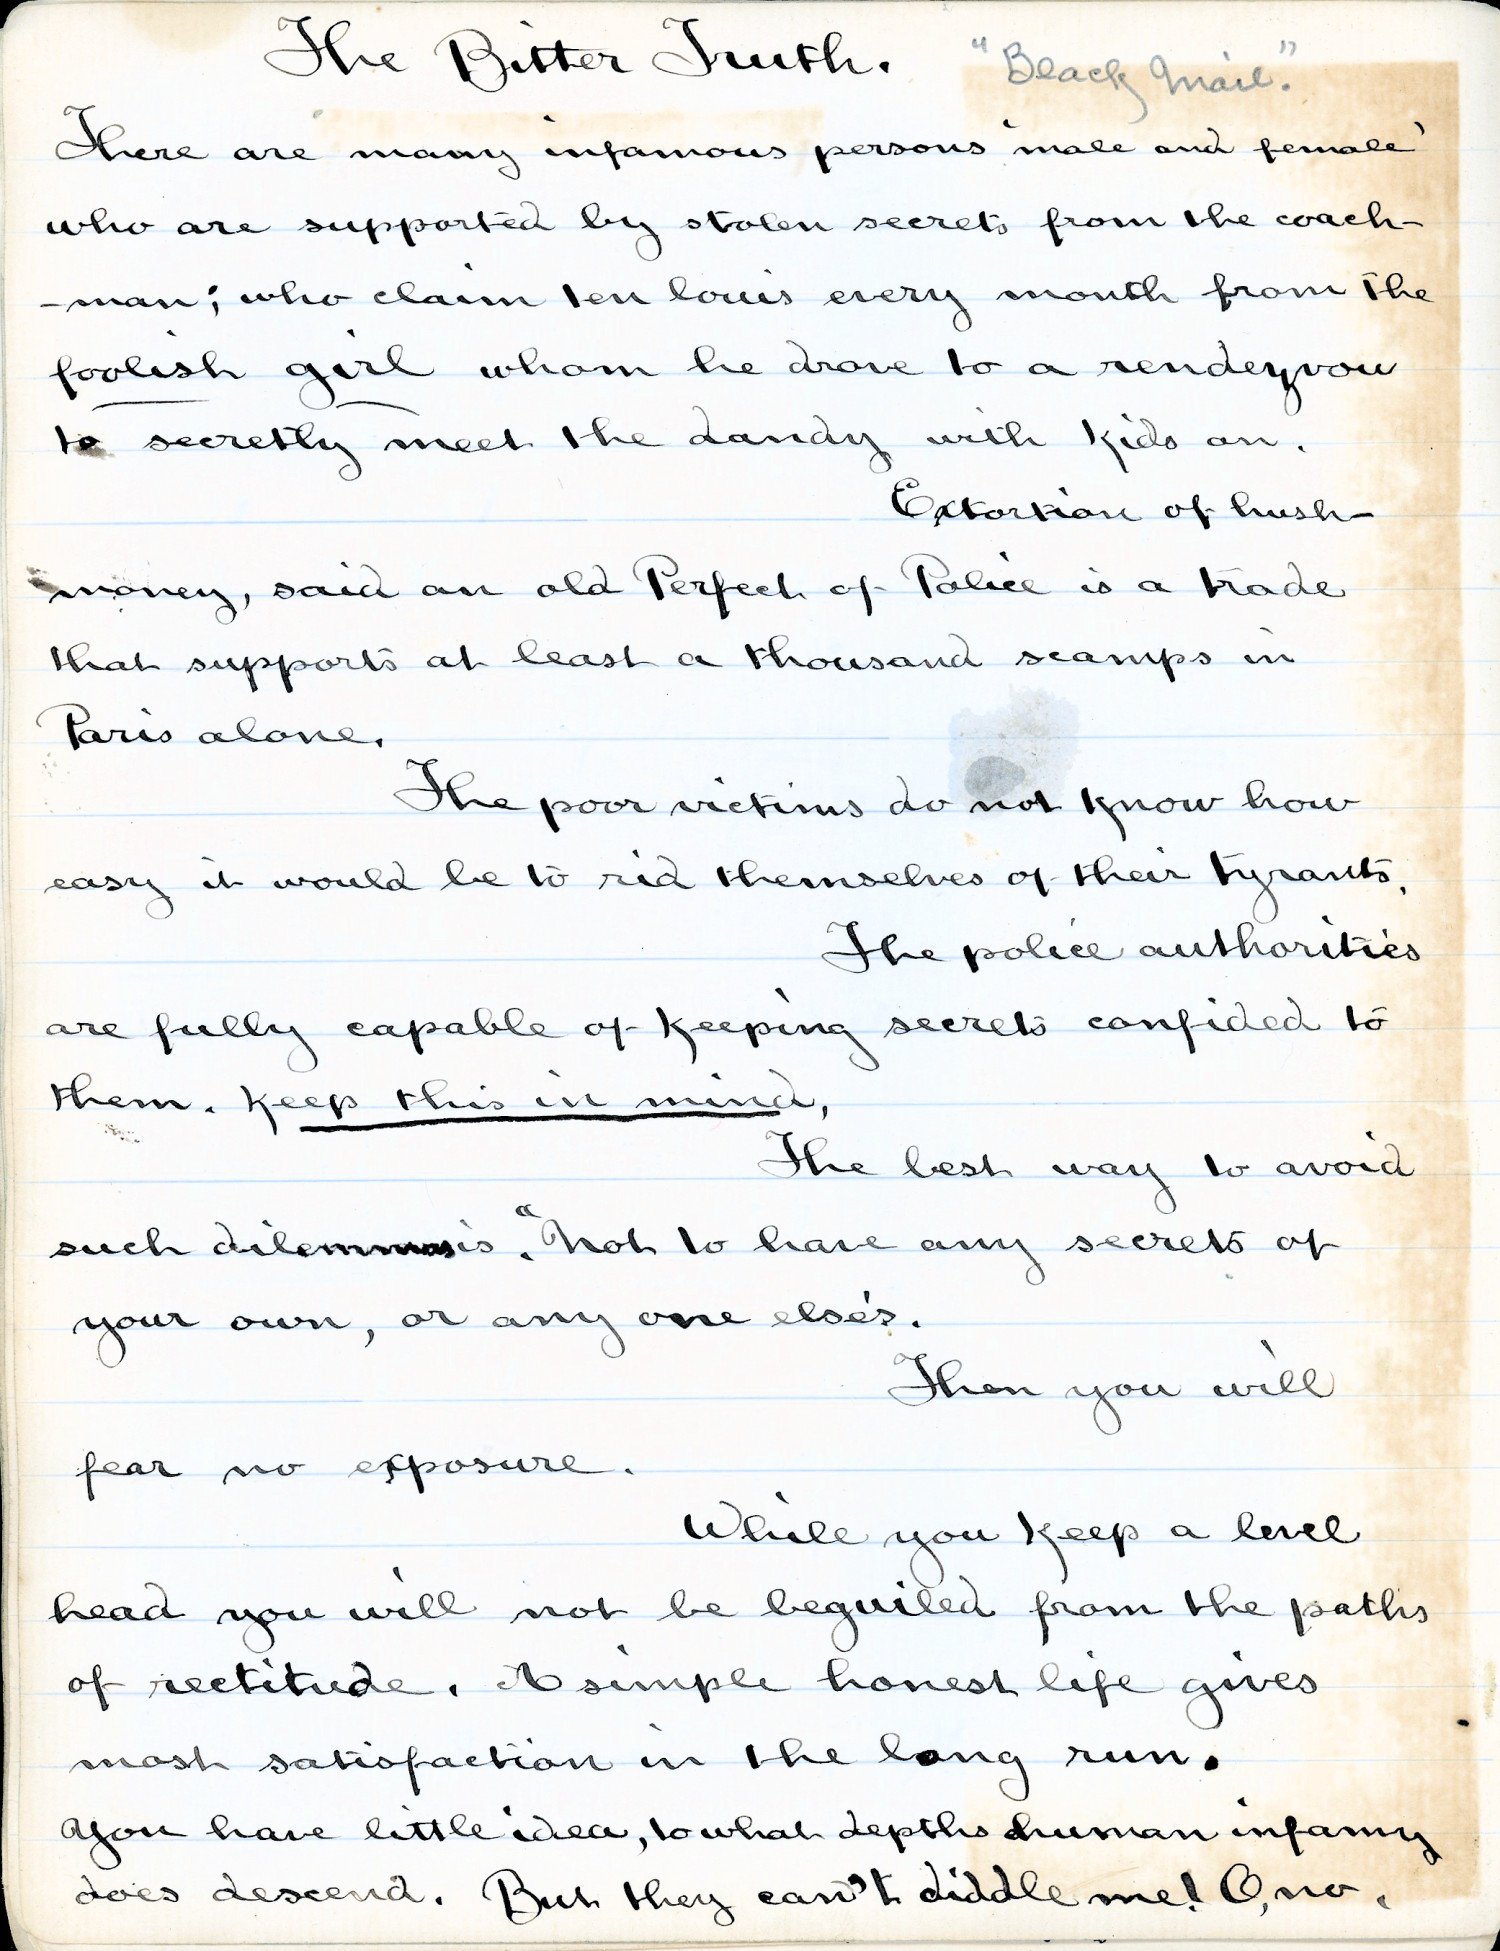 The Bitter Truth. "Black Mail."
There are many infamous persons 'male and female'
who are supported by stolen secrets from the coach-
-man; who claim ten louis every month from the
foolish girl whom he drove to a rendezvou
to secretly meet the dandy with kids on.
Extortion of hush-
money, said an old Perfect of Police is a trade
that supports at least a thousand scamps in
Paris alone.
The poor victims do not know how
easy it would be to rid themselves of their tyrants.
The police authorities
are fully capable of keeping secrets confided to
them. Keep this in mind,
The best way to avoid
such dilemmas is. "Not to have any secrets of
your own, or any one else's.
Then you will
fear no exposure.
While you keep a level
head you will not be beguiled from the paths
of rectitude. A simple honest life gives
most satisfaction in the long run.
You have little idea, to what depths human infamy
does descend. But they can't diddle me! O, no.